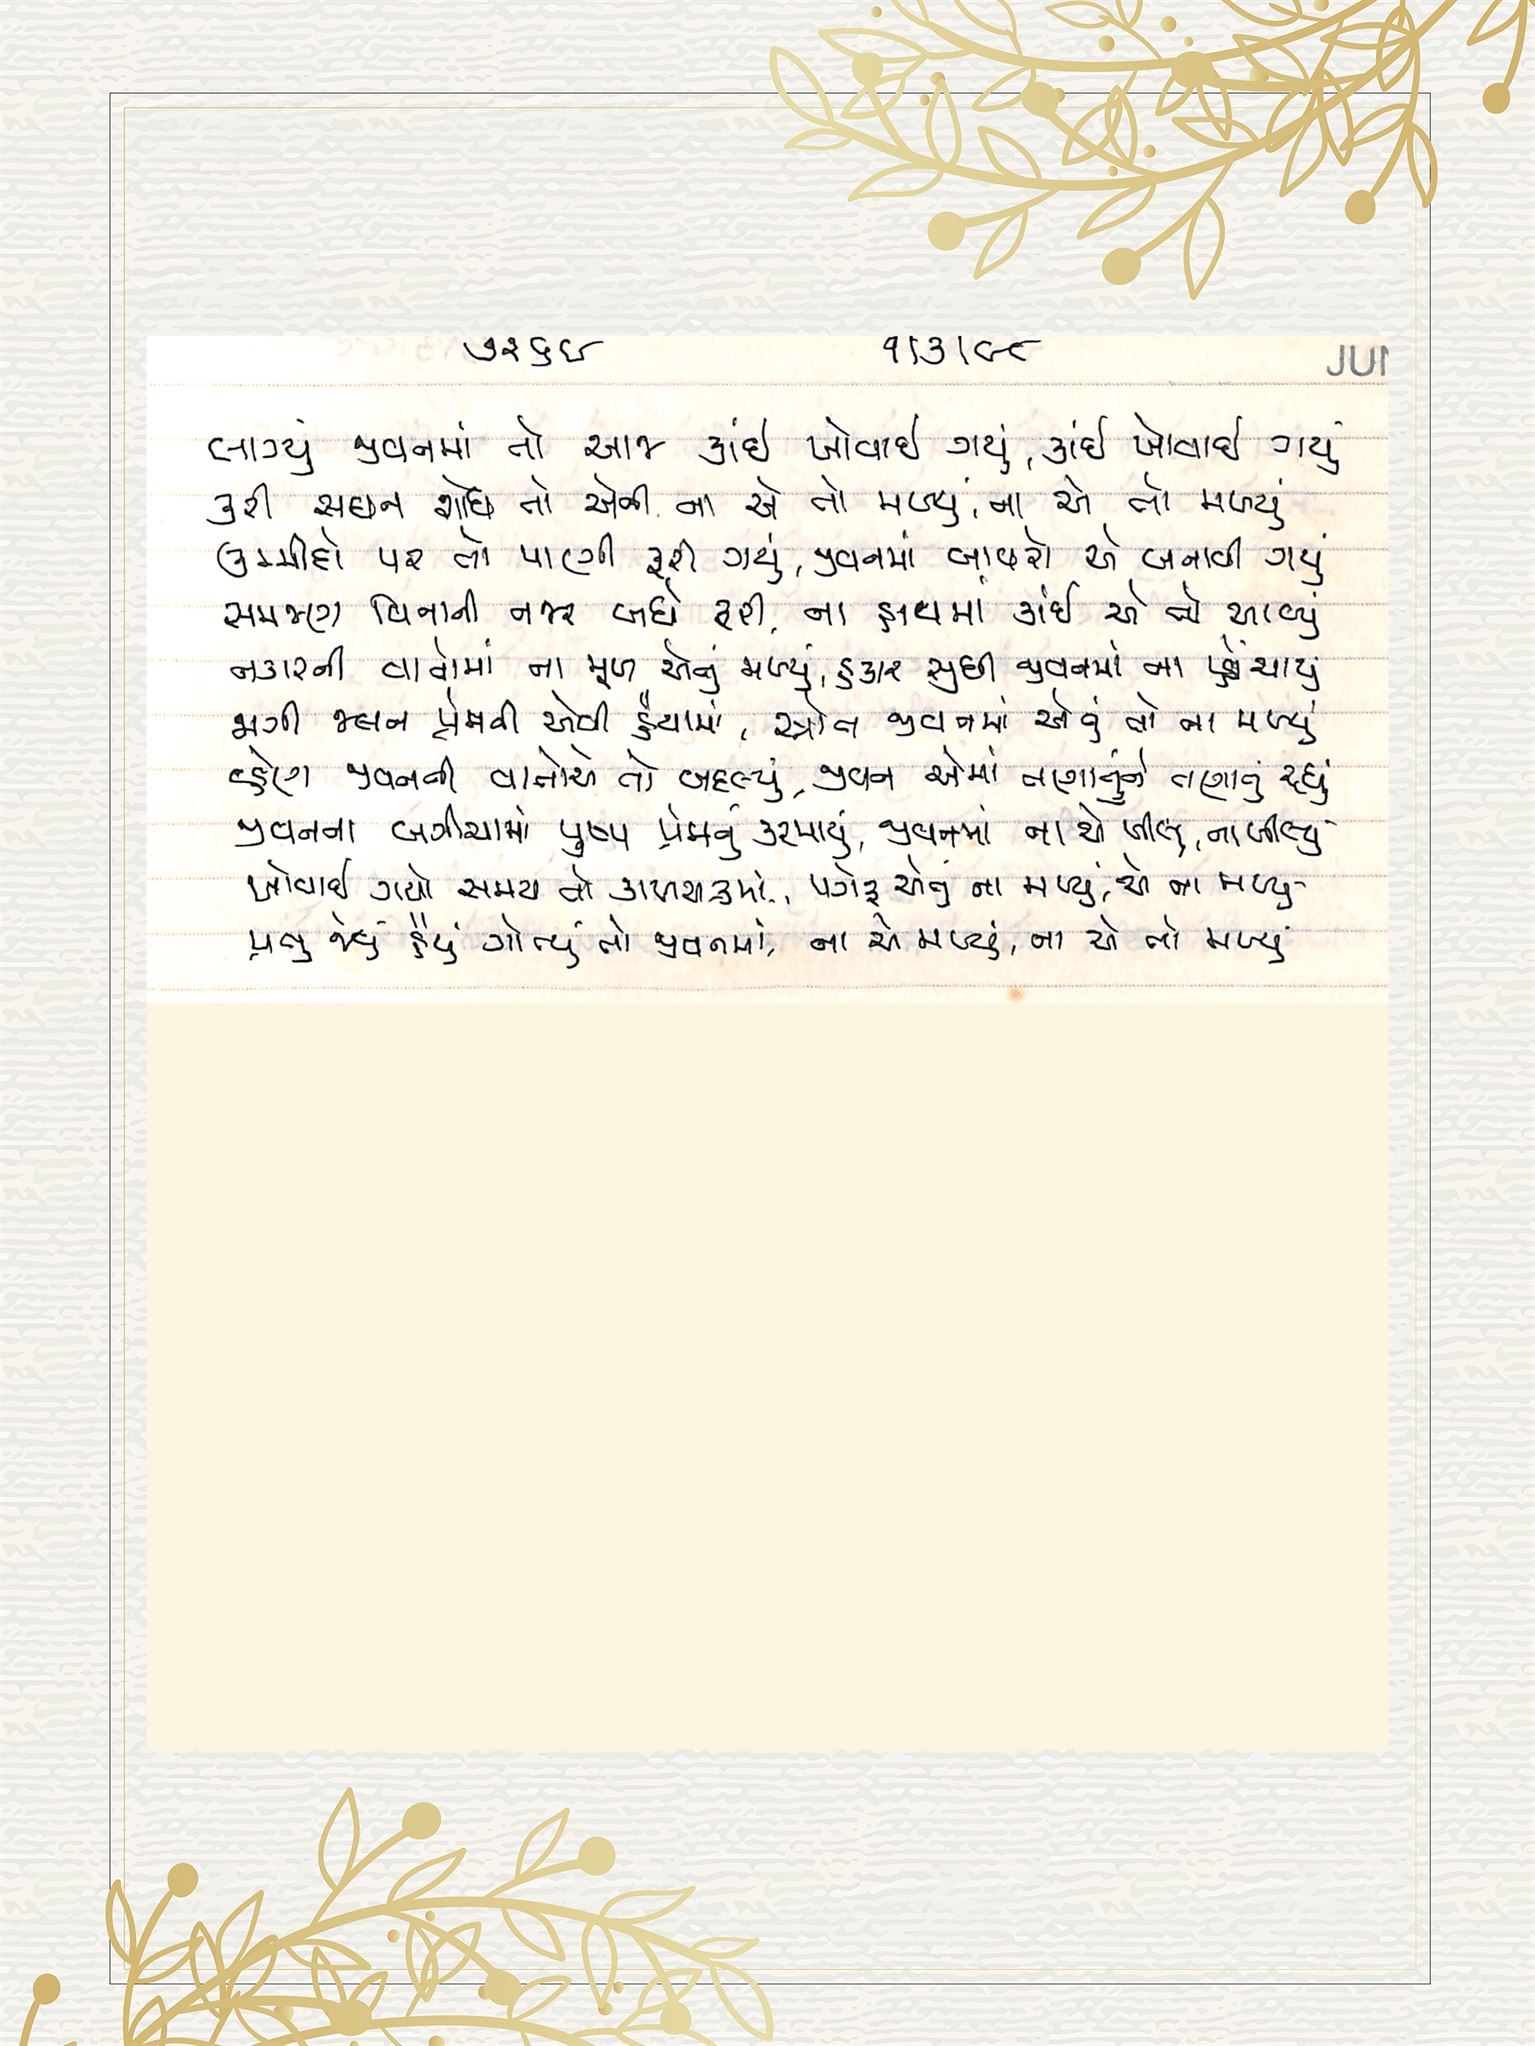 ૭૨૬૬ ૧/૩/૯૮ JUN
લાગ્યું જીવનમાં તો આજ કાંઈ ખોવાઈ ગયું, કાંઈ ખોવાઈ ગયું
કરી સઘન શોધ તો એની ના એ તો મળ્યું, ના એ તો મળ્યું
ઉમ્મીદો પર તો પાણી ફરી ગયું, જીવનમાં બાવરો એ બનાવી ગયું
સમજણ વિનાની નજર બધે ફરી, ના હાથમાં કાંઈ એ તો આવ્યું
નકારની વાતોમાં ના મૂળ એનું મળ્યું, હકાર સુધી જીવનમાં ના પ્હોંચાયું
જાગી જલન પ્રેમની એવી હૈયામાં, સ્ત્રોત જીવનમાં એનું તો ના મળ્યું
વ્હેણ જીવનની વાતોએ તો બદલ્યું, જીવન એમાં તણાતુંને તણાતું રહ્યું
જીવનના બગીચામાં પુષ્પ પ્રેમનું કરમાયું, જીવનમાં ના એ ખીલ્યું, ના ખીલ્યું
ખોવાઈ ગયો સમય તો કાળચક્રમાં, પગેરૂ એનું ના મળ્યું, એ ના મળ્યું
પ્રભુ જેવું હૈયું ગોત્યું તો જીવનમાં, ના એ મળ્યું, ના એ તો મળ્યું